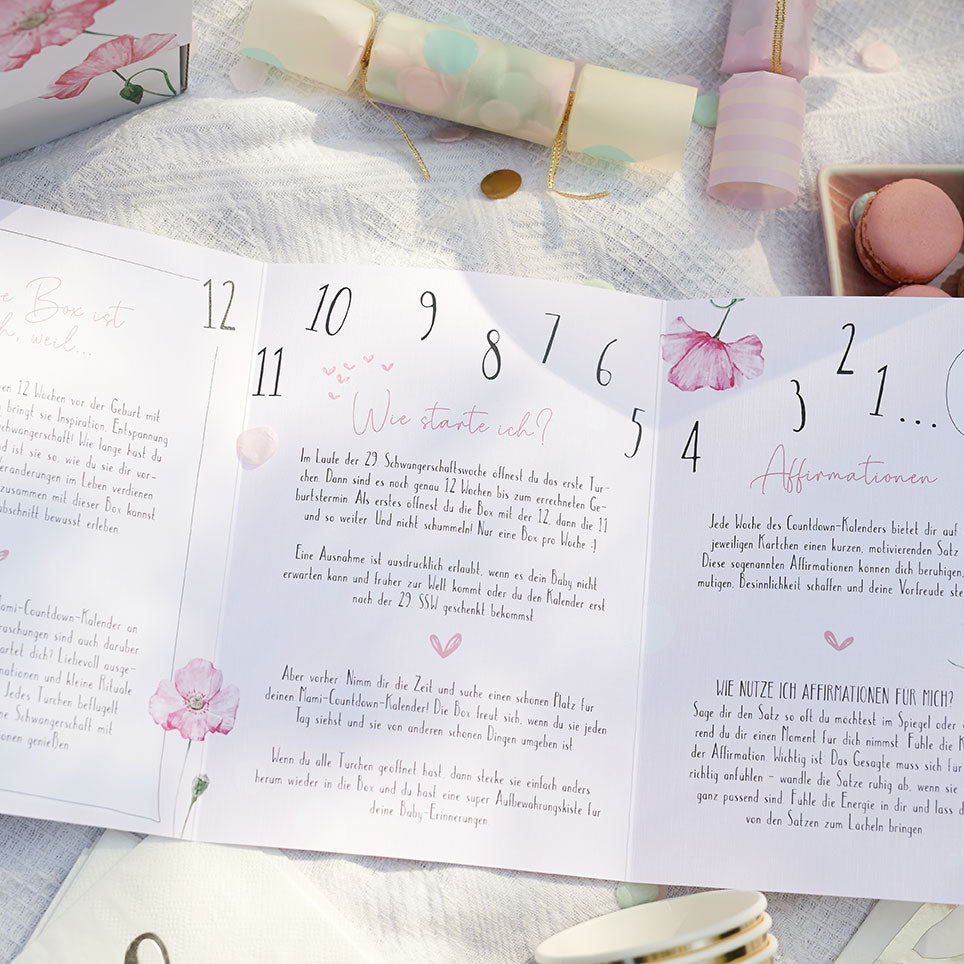 12 11 10 9 8 7 6 5 4 3 2 1...
Box ist
weil...
12 Wochen vor der Geburt mit
bringt sie Inspiration, Entspannung
Wie lange hast du
ist sie so, wie du sie dir vor-
im Leben verdienen
zusammen mit dieser Box kannst
bewusst erleben.
Mami-Countdown-Kalender an
sind auch darüber
dich? Liebevoll ausge-
und kleine Rituale
Jedes Türchen beflügelt
Schwangerschaft mit
genießen.
Wie starte ich?
Im Laufe der 29. Schwangerschaftswoche öffnest du das erste Tür-
chen. Dann sind es noch genau 12 Wochen bis zum errechneten Ge-
burtstermin. Als erstes öffnest du die Box mit der 12, dann die 11
und so weiter. Und nicht schummeln! Nur eine Box pro Woche ;)
Eine Ausnahme ist ausdrücklich erlaubt, wenn es dein Baby nicht
erwarten kann und früher zur Welt kommt oder du den Kalender erst
nach der 29. SSW geschenkt bekommst.
Aber vorher: Nimm dir die Zeit und suche einen schönen Platz für
deinen Mami-Countdown-Kalender! Die Box freut sich, wenn du sie jeden
Tag siehst und sie von anderen schönen Dingen umgeben ist.
Wenn du alle Türchen geöffnet hast, dann stecke sie einfach anders
herum wieder in die Box und du hast eine super Aufbewahrungskiste für
deine Baby-Erinnerungen.
Affirmationen
Jede Woche des Countdown-Kalenders bietet dir auf
jeweiligen Kärtchen einen kurzen, motivierenden Satz
Diese sogenannten Affirmationen können dich beruhigen,
mutigen, Besinnlichkeit schaffen und deine Vorfreude
WIE NUTZE ICH AFFIRMATIONEN FÜR MICH?
Sage dir den Satz so oft du möchtest im Spiegel oder
rend du dir einen Moment für dich nimmst. Fühle die
der Affirmation. Wichtig ist: Das Gesagte muss sich für
richtig anfühlen – wandle die Sätze ruhig ab, wenn sie
ganz passend sind. Fühle die Energie in dir und lass
von den Sätzen zum Lächeln bringen.